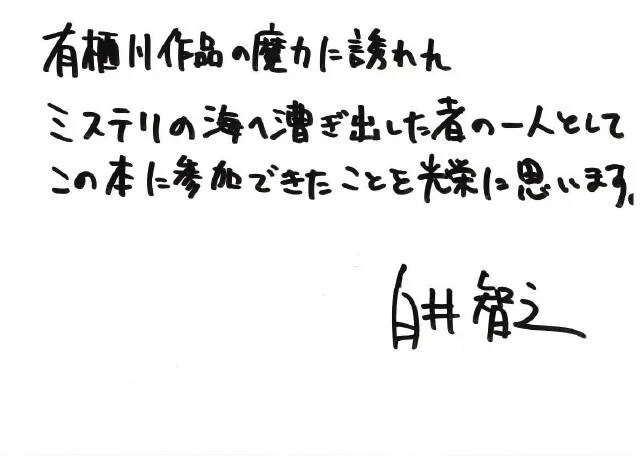 有栖川作品の魔力に誘われ
ミステリの海へ漕ぎ出した者の一人として
この本に参加できたことを光栄に思います。
白井智之